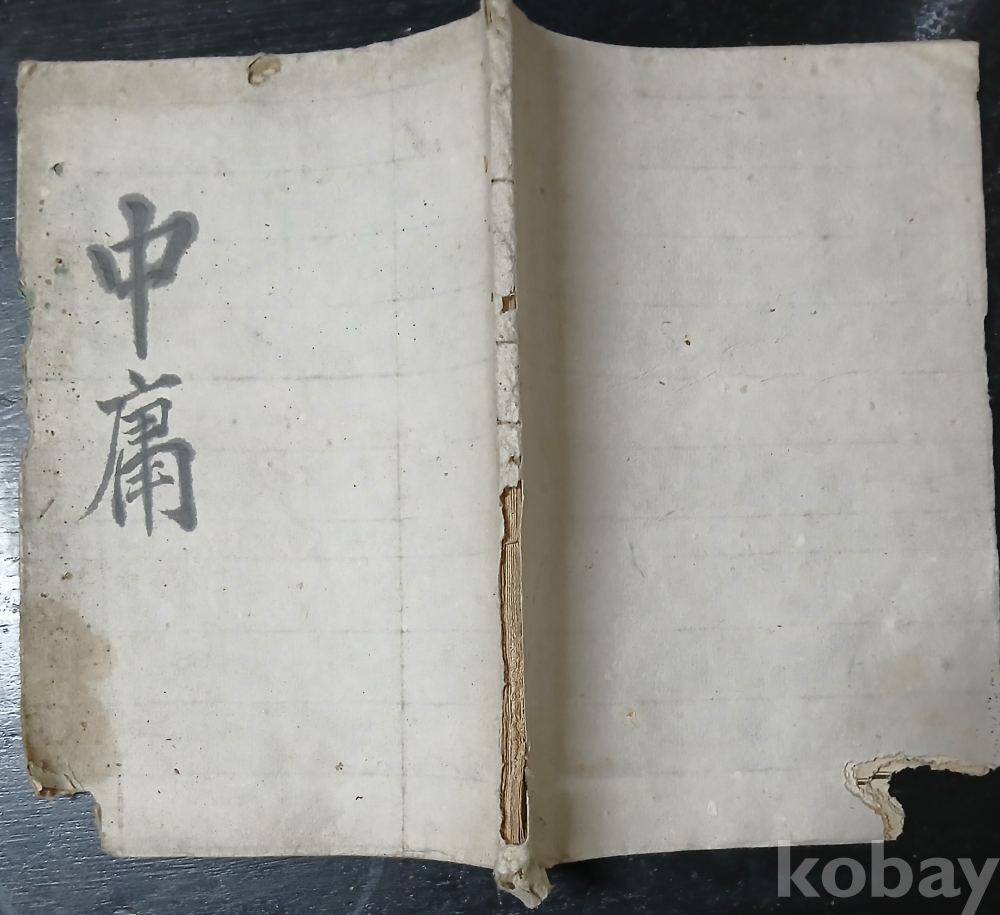 中庸
kobay